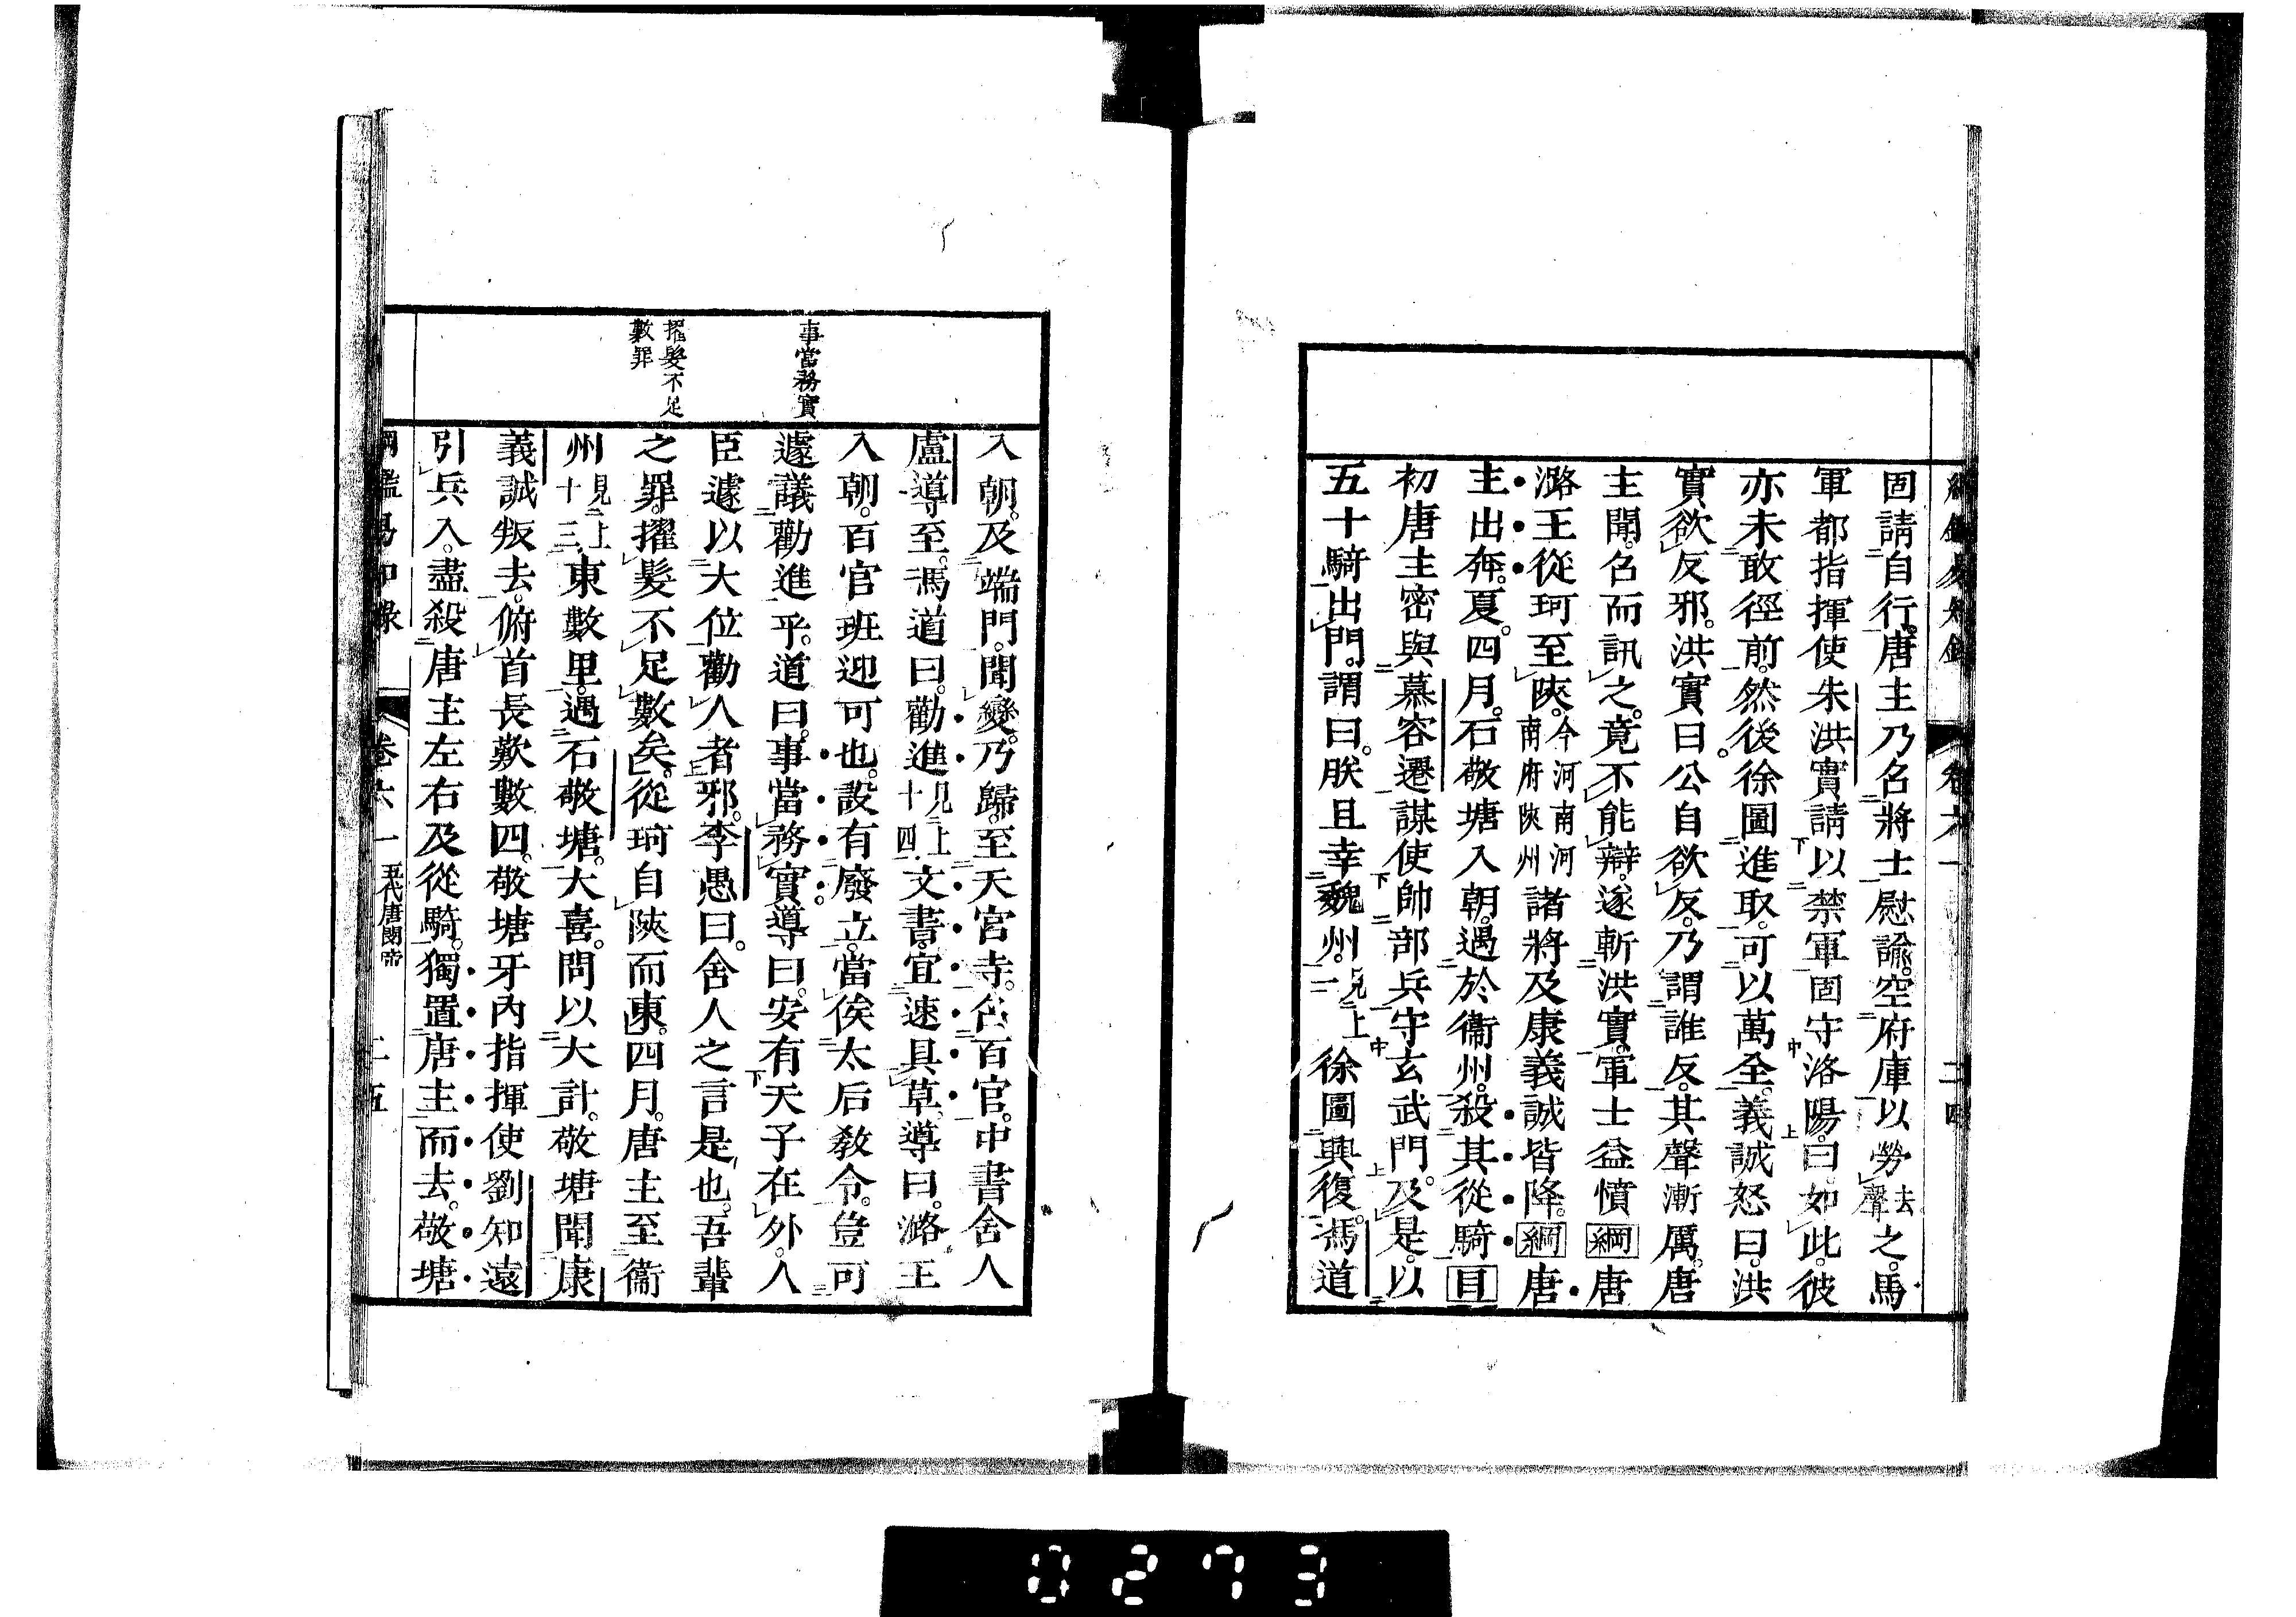 綱鑑易知録 卷六一 二四
固請自行。唐主乃召將士慰諭。空府庫以勞去聲之。馬
軍都指揮使朱洪實請以禁軍固守洛陽。曰。如此。彼
亦未敢徑前。然後徐圖進取。可以萬全。義誠怒曰。洪
實欲反邪。洪實曰。公自欲反。乃謂誰反。其聲漸厲。唐
主聞。召而訊之。竟不能辯。遂斬洪實。軍士益憤綱唐
潞王從珂至陝。今河南河南府陝州諸將及康義誠皆降。綱唐
主出奔。夏。四月。石敬塘入朝。遇於衞州。殺其從騎目
初唐主密與慕容遷謀使帥部兵守玄武門。及是。以
五十騎出門。謂曰。朕且幸魏州。見上二徐圖興復。馮道
事當務實
擢髮不足
數罪
入朝。及端門。聞變。乃歸。至天宮寺。召百官。中書舍人
盧導至。馮道曰。勸進見上十四文書。宜速具草。導曰。潞王
入朝。百官班迎可也。設有廢立。當俟太后教令。豈可
遽議勸進乎。道曰。事當務實。導曰。安有天子在外。人
臣遽以大位勸人者邪。李愚曰。舍人之言是也。吾輩
之罪。擢髮不足數矣。從珂自陝而東。四月。唐主至衞
州見上十三東數里。遇石敬塘。大喜。問以大計。敬塘聞康
義誠叛去。俯首長歎數四。敬塘牙內指揮使劉知遠
引兵入。盡殺唐主左右及從騎。獨置唐主而去。敬塘
綱鑑易知録 卷六一 五代唐閔帝 二五
0273